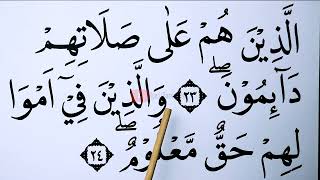 الَّذِيْنَ هُمْ عَلٰى صَلَاتِهِمْ
دَآىِٕمُوْنَ ۖ ﴿٢٣﴾ وَالَّذِيْنَ فِيْٓ اَمْوَا
لِهِمْ حَقٌّ مَّعْلُوْمٌ ۖ ﴿٢٤﴾